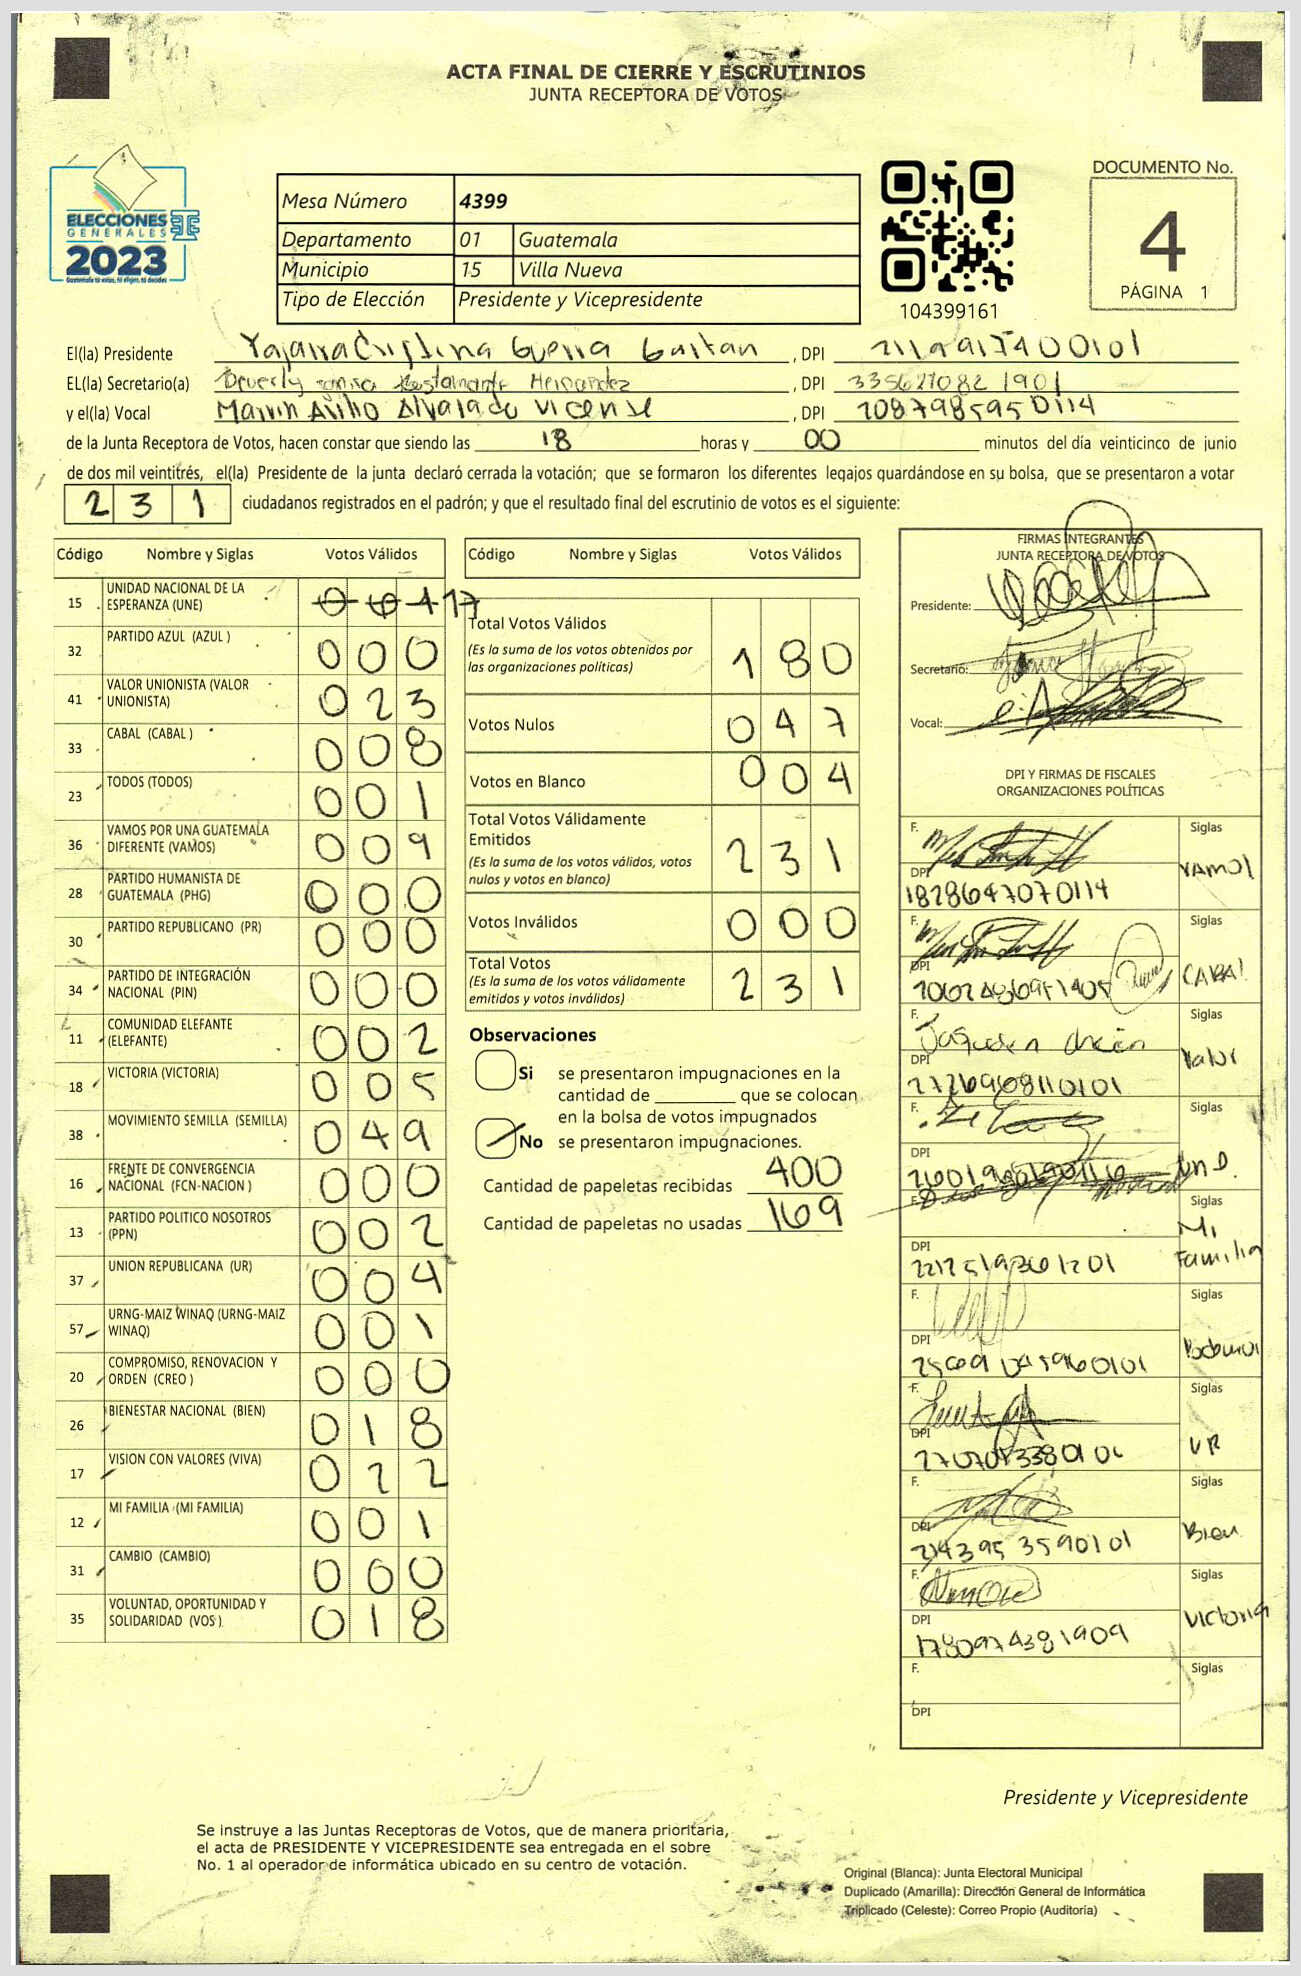 ACTA FINAL DE CIERRE Y ESCRUTINIOS
JUNTA RECEPTORA DE VOTOS
ELECCIONES
GENERALES
2023
Mesa Número 4399
Departamento 01 Guatemala
Municipio 15 Villa Nueva
Tipo de Elección Presidente y Vicepresidente
104399161
DOCUMENTO No.
4
PÁGINA 1
El(la) Presidente Guerra Gaitan , DPI
EL(la) Secretario(a) Hernandez , DPI 335627082 1901
y el(la) Vocal Alvarado Vicense , DPI 2087985950114
de la Junta Receptora de Votos, hacen constar que siendo las 18 horas y 00 minutos del día veinticinco de junio
de dos mil veintitrés, el(la) Presidente de la junta declaró cerrada la votación; que se formaron los diferentes legajos guardándose en su bolsa, que se presentaron a votar
231 ciudadanos registrados en el padrón; y que el resultado final del escrutinio de votos es el siguiente:
Código Nombre y Siglas Votos Válidos
15 UNIDAD NACIONAL DE LA ESPERANZA (UNE) 17
32 PARTIDO AZUL (AZUL ) 000
41 VALOR UNIONISTA (VALOR UNIONISTA) 023
33 CABAL (CABAL ) 008
23 TODOS (TODOS) 001
36 VAMOS POR UNA GUATEMALA DIFERENTE (VAMOS) 009
28 PARTIDO HUMANISTA DE GUATEMALA (PHG) 000
30 PARTIDO REPUBLICANO (PR) 000
34 PARTIDO DE INTEGRACIÓN NACIONAL (PIN) 000
11 COMUNIDAD ELEFANTE (ELEFANTE) 002
18 VICTORIA (VICTORIA) 005
38 MOVIMIENTO SEMILLA (SEMILLA) 049
16 FRENTE DE CONVERGENCIA NACIONAL (FCN-NACION ) 000
13 PARTIDO POLITICO NOSOTROS (PPN) 002
37 UNION REPUBLICANA (UR) 004
57 URNG-MAIZ WINAQ (URNG-MAIZ WINAQ) 001
20 COMPROMISO, RENOVACION Y ORDEN (CREO ) 000
26 BIENESTAR NACIONAL (BIEN) 018
17 VISION CON VALORES (VIVA) 022
12 MI FAMILIA (MI FAMILIA) 001
31 CAMBIO (CAMBIO) 000
35 VOLUNTAD, OPORTUNIDAD Y SOLIDARIDAD (VOS ) 018
Código Nombre y Siglas Votos Válidos
Total Votos Válidos 180
(Es la suma de los votos obtenidos por
las organizaciones políticas)
Votos Nulos 047
Votos en Blanco 004
Total Votos Válidamente
Emitidos 231
(Es la suma de los votos válidos, votos
nulos y votos en blanco)
Votos Inválidos 000
Total Votos 231
(Es la suma de los votos válidamente
emitidos y votos inválidos)
Observaciones
Si se presentaron impugnaciones en la
cantidad de ________ que se colocan
en la bolsa de votos impugnados
No se presentaron impugnaciones.
Cantidad de papeletas recibidas 400
Cantidad de papeletas no usadas 169
FIRMAS INTEGRANTES
JUNTA RECEPTORA DE VOTOS
Presidente:
Secretario:
Vocal:
DPI Y FIRMAS DE FISCALES
ORGANIZACIONES POLÍTICAS
F. Siglas
DPI 1828647070114
F. Siglas CABAL
DPI
F. Siglas Valor
DPI
F. Siglas
DPI
F. Siglas Mi Familia
DPI
F. Siglas
DPI
F. Siglas UR
DPI
F. Siglas Bien
DPI 214395 3590101
F. Siglas Victoria
DPI 1780974381909
F. Siglas
DPI
Presidente y Vicepresidente
Se instruye a las Juntas Receptoras de Votos, que de manera prioritaria,
el acta de PRESIDENTE Y VICEPRESIDENTE sea entregada en el sobre
No. 1 al operador de informática ubicado en su centro de votación.
Original (Blanca): Junta Electoral Municipal
Duplicado (Amarilla): Dirección General de Informática
Triplicado (Celeste): Correo Propio (Auditoría)